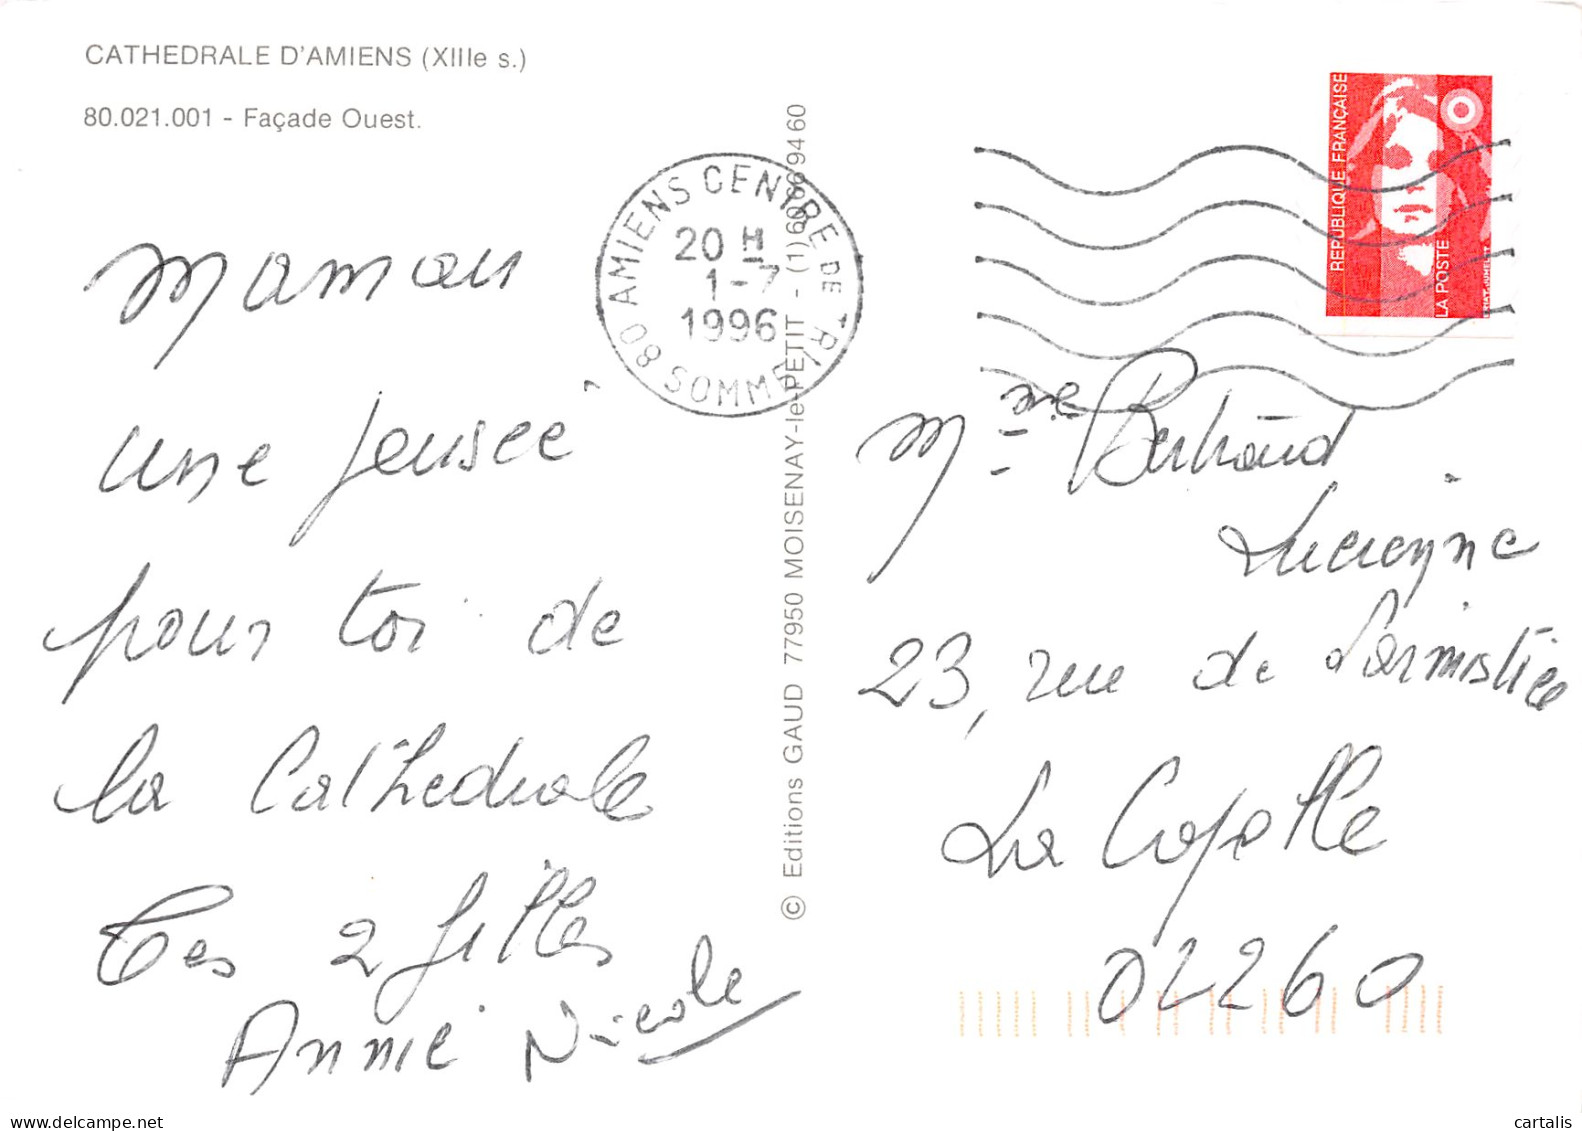 CATHEDRALE D'AMIENS (XIIIe s.)
80.021.001 - Façade Ouest.
Maman
une pensée
pour toi de
la Cathédrale
Tes 2 filles
Annie Nicole
© Editions GAUD 77950 MOISENAY-le-PETIT - (1) 60 66 94 60
80 AMIENS CENTRE DE TRI
SOMME
20 H
1-7
1996
REPUBLIQUE FRANÇAISE
LA POSTE
Mme Bertrand
Lucienne
23, rue de L'armistice
La Capelle
02260
cartalis